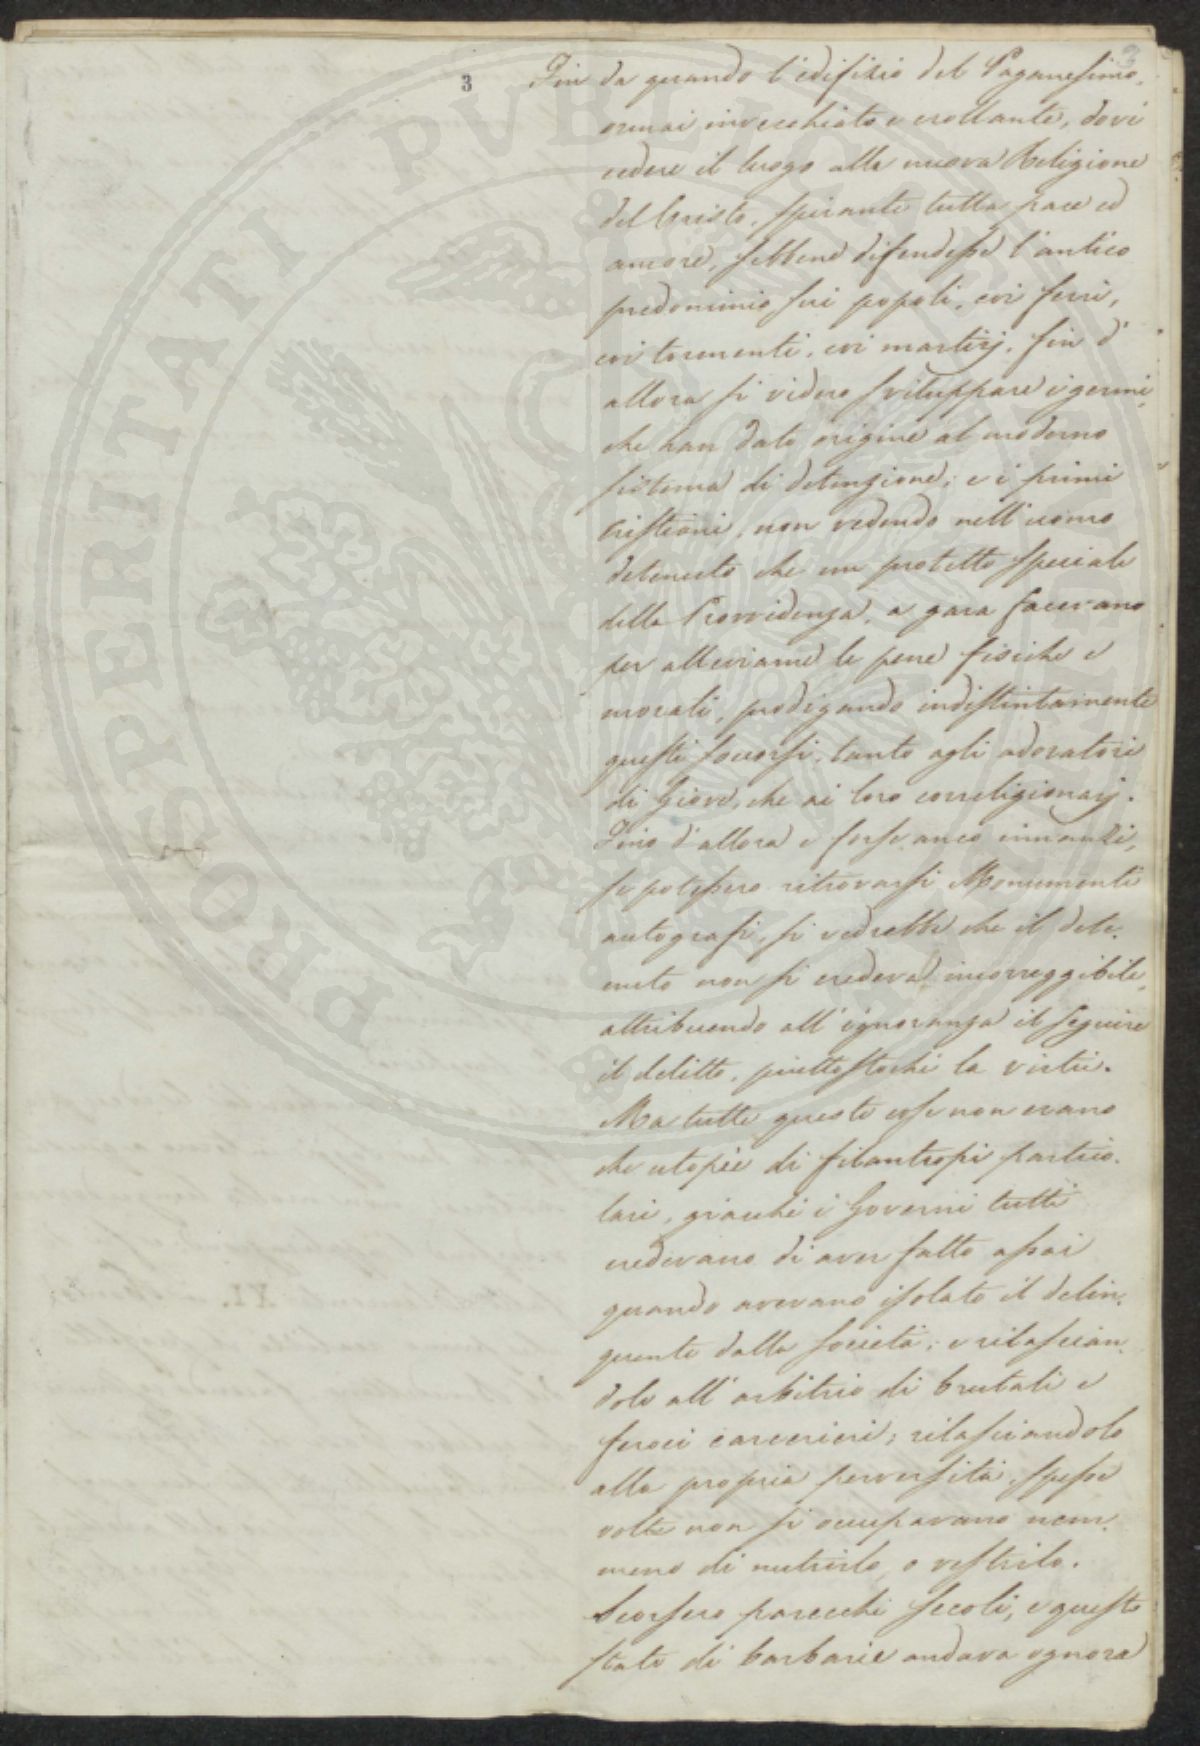 3
3
Fin da quando l'edifizio del Paganesimo,
ormai invecchiato e crollante, dovè
cedere il luogo alla nuova Religione
del Cristo, spirante tutta pace ed
amore, sebbene difendesse l'antico
predominio sui popoli, coi ferri,
coi tormenti, coi martirj, fin d'
allora si videro sviluppare i germi,
che han dato origine al moderno
sistema di detenzione; e i primi
cristiani, non vedendo nell'uomo
detenuto che un protetto speciale
della Provvidenza, a gara facevano
per alleviarne le pene fisiche e
morali, prodigando indistintamente
questi soccorsi, tanto agli adoratori
di Giove, che ai loro correligionarj.
Fino d'allora e forse anco innanzi,
se potessero ritrovarsi Monumenti
autografi, si vedrebbe che il dete-
nuto non si credeva incorreggibile,
attribuendo all'ignoranza il seguire
il delitto, piuttostochè la virtù.
Ma tutte queste cose non erano
che utopie di filantropi partico-
lari, giacchè i Governi tutti
credevano di aver fatto assai
quando avevano isolato il delin-
quente dalla società; e rilascian-
dolo all'arbitrio di brutali e
feroci carcerieri; rilasciandolo
alla propria perversità, spesse
volte non si occupavano nem-
meno di nutrirlo, o vestirlo.
Scorsero parecchi secoli, e questo
stato di barbarie andava ognora
PROSPERITATI PVBLICAE
XI.